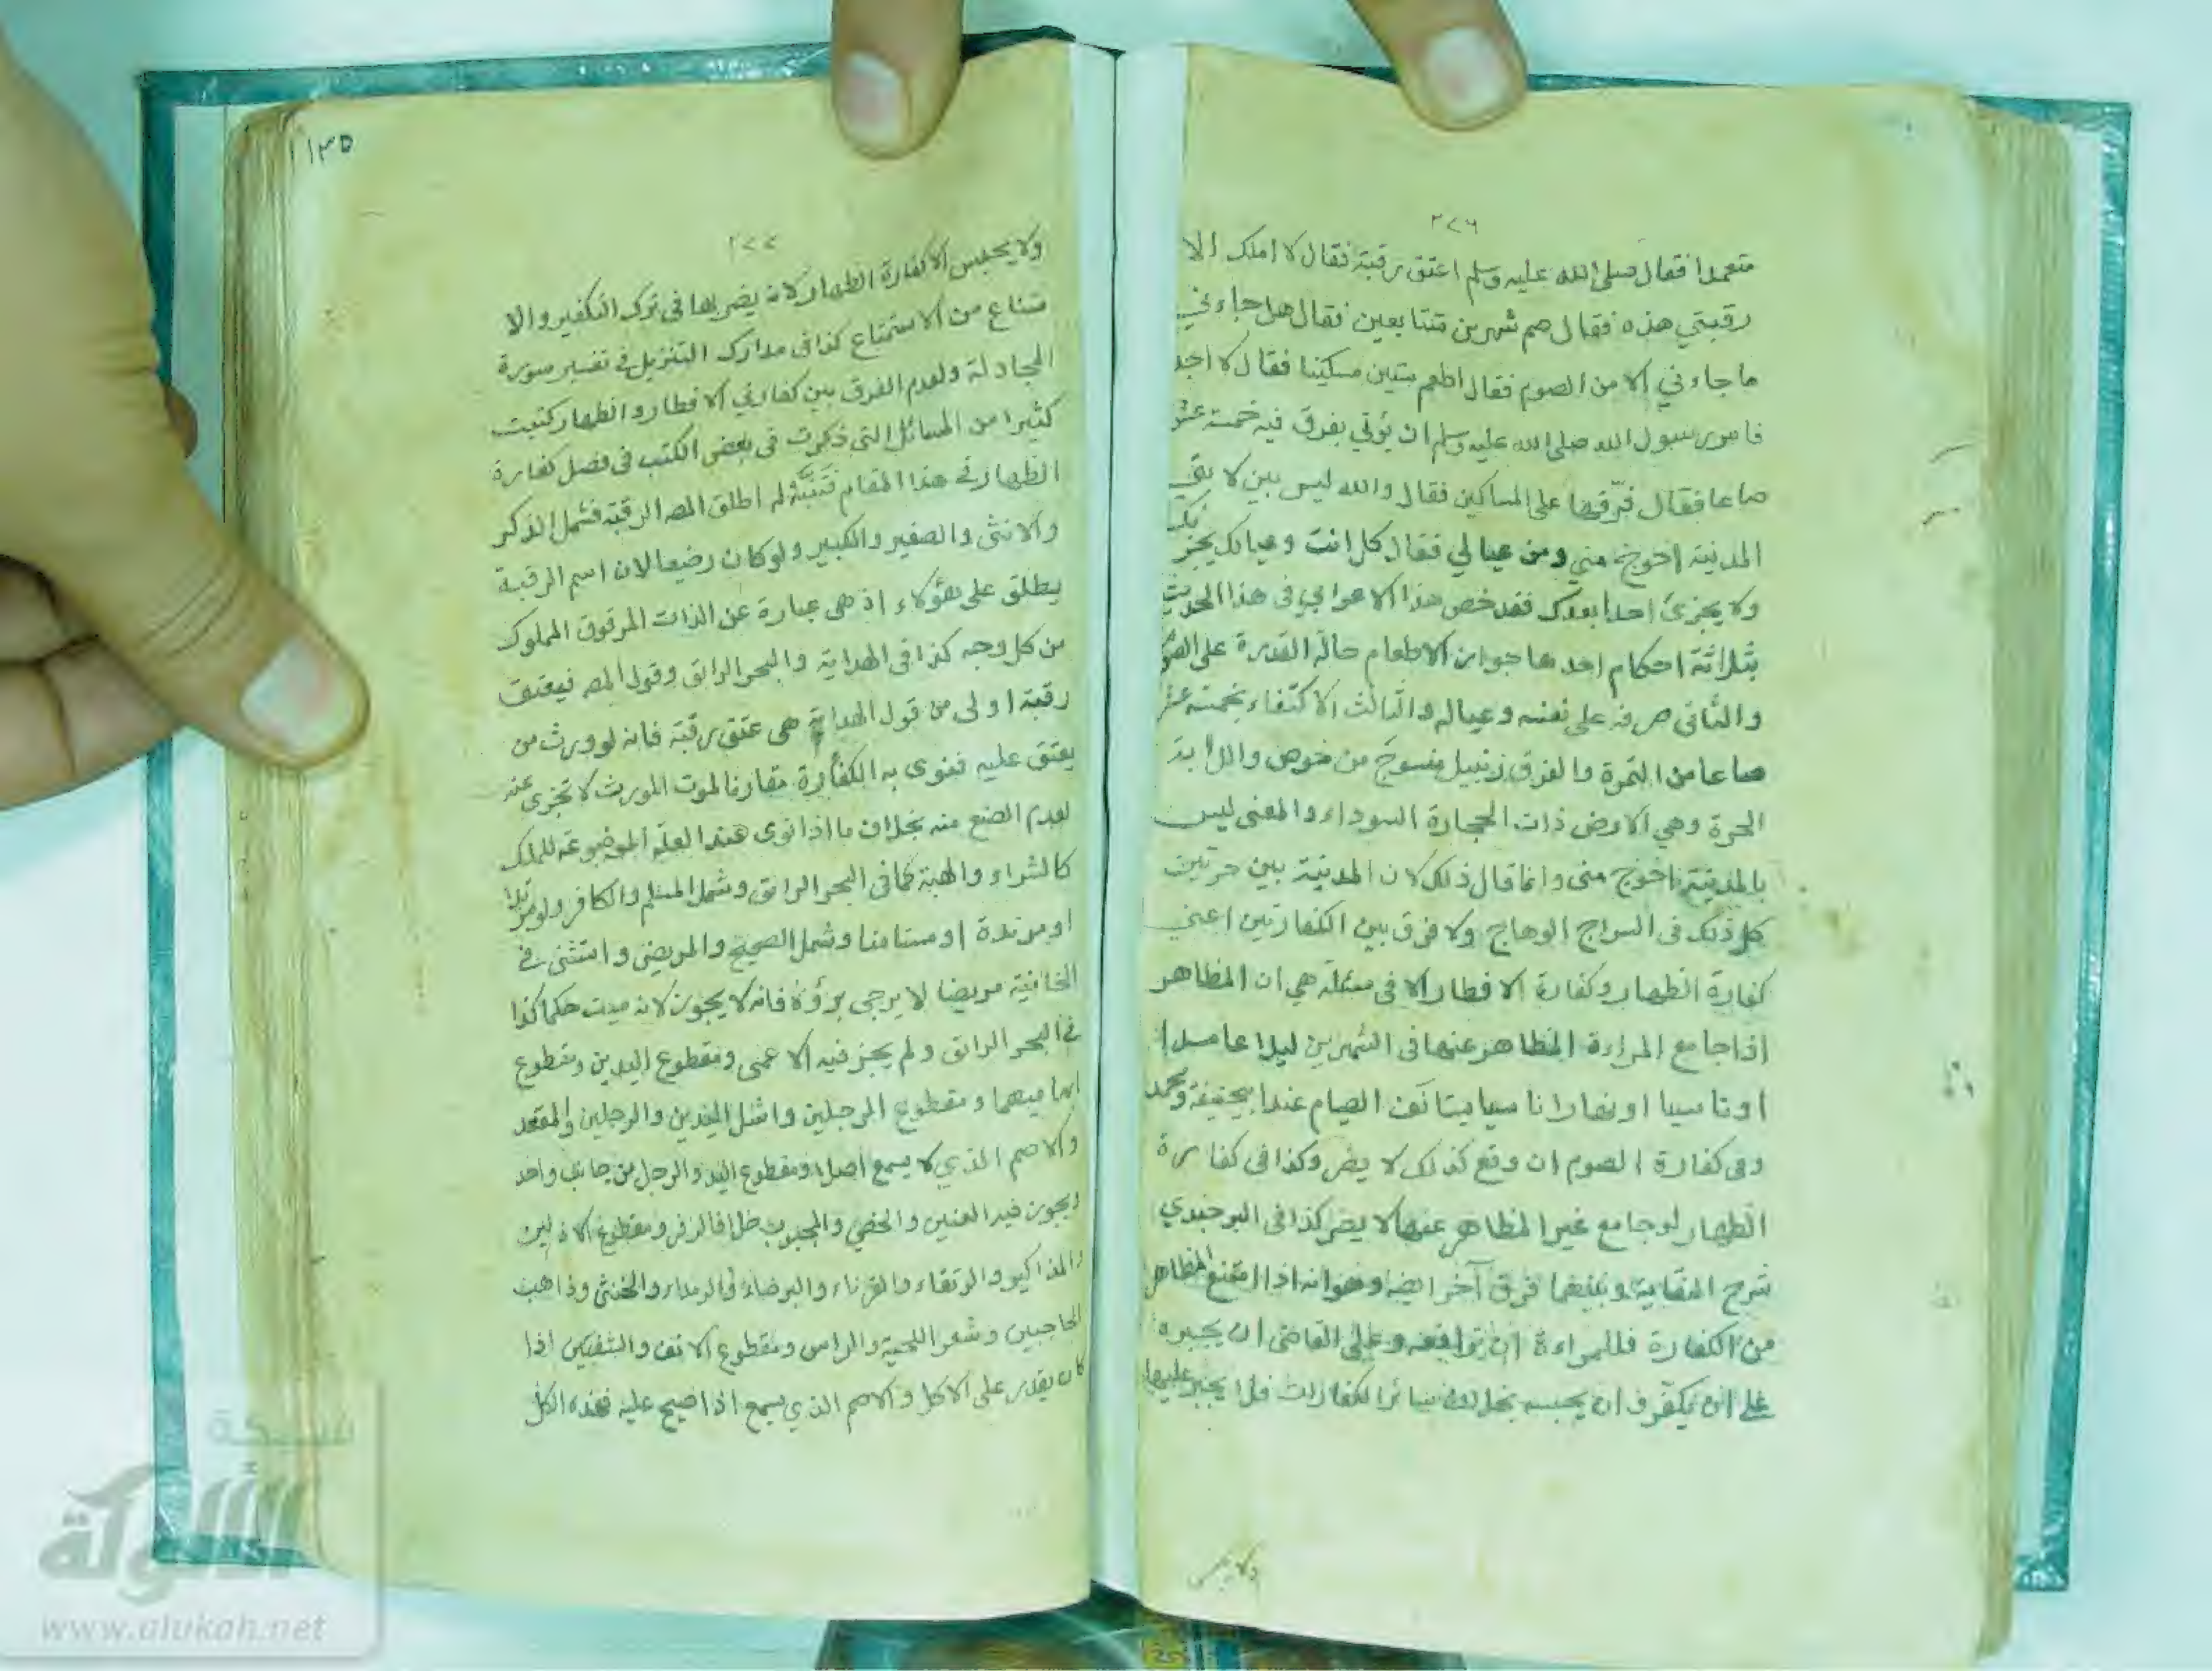 ٢٢٦
متعمدا فقال صلى الله عليه وسلم اعتق رقبة فقال لا املك الا
رقبتي هذه فقال صم شهرين متتابعين فقال هل جاءني
ما جاءني الا من الصوم فقال اطعم ستين مسكينا فقال لا اجد
فامر رسول الله صلى الله عليه وسلم ان يؤتي بفرق فيه خمسة عشر
صاعا فقال فرّقها على المساكين فقال والله ليس بين لابتي
المدينة احوج مني ومن عيالي فقال كل انت وعيالك يجزيك
ولا يجزئ احدا بعدك فقد خص هذا الاعرابي في هذا الحديث
بثلاثة احكام احدها جواز الاطعام حالة القدرة على الصوم
والثاني صرفه على نفسه وعياله والثالث الاكتفاء بخمسة عشر
صاعا من التمرة والفرق زنبيل منسوج من خوص واللابة
الحرة وهي الارض ذات الحجارة السوداء والمعنى ليس
بالمدينة احوج منى وانما قال ذلك لان المدينة بين حرتين
كل ذلك في السراج الوهاج ولا فرق بين الكفارتين اعني
كفارة الظهار وكفارة الافطار الا في مسئلة هي ان المظاهر
اذا جامع المراءة المظاهر عنها في الشهرين ليلا عامدا
او ناسيا او نهارا ناسيا يستانف الصيام عند ابيحنيفة ومحمد
وفى كفارة الصوم ان وقع كذلك لا يضر وكذا في كفارة
الظهار لو جامع غير المظاهر عنها لا يضر كذا في البرجندي
شرح النقاية وبينهما فرق آخر ايضا وهو انه اذا امتنع المظاهر
من الكفارة فللمراءة ان ترافعه وعلى القاضى ان يجبره
على ان يكفّر وان يحبسه بخلاف سائر الكفارات فلا يجبر عليها
ولا يحبس
١٣٥
٢٢٧
ولا يحبس الا كفارة الظهار لانه يضر بها في ترك التكفير والا
متناع من الاستمتاع كذا في مدارك التنزيل في تفسير سورة
المجادلة ولعدم الفرق بين كفارتي الافطار والظهار كتبت
كثيرا من المسائل التي ذكرت في بعض الكتب في فصل كفارة
الظهار في هذا المقام فتنبّه له اطلق المصـ الرقبة فشمل الذكر
والانثى والصغير والكبير ولو كان رضيعا لان اسم الرقبة
يطلق على هؤلاء اذ هى عبارة عن الذات المرقوق المملوك
من كل وجه كذا في الهداية والبحر الرائق وقول المصـ فيعتق
رقبة اولى من قول الهداية هى عتق رقبة فانه لو ورث من
يعتق عليه فنوى به الكفارة مقارنا لموت المورث لا تجزى عنه
لعدم الصنع منه بخلاف ما اذا نوى عند العلة الموضوعة للملك
كالشراء والهبة كما في البحر الرائق وشمل المسلم والكافر ولو مرتدا
او مرتدة او مستامنا وشمل الصحيح والمريض واستثنى في
الخانية مريضا لا يرجى برؤه فانه لا يجوز لانه ميت حكما كذا
في البحر الرائق ولم يجز فيه الاعمى ومقطوع اليدين ومقطوع
ابهاميهما ومقطوع الرجلين واشل اليدين والرجلين والمقعد
والاصم الذي لا يسمع اصلا ومقطوع اليد والرجل من جانب واحد
ويجوز فيه العنين والخصي والمجبوب خلافا لزفر ومقطوع الاذنين
والمذاكير والرتقاء والقرناء والبرصاء والرمداء والخنثى وذاهب
الحاجبين وشعر اللحية والراس ومقطوع الانف والشفتين اذا
كان يقدر على الاكل والاصم الذي يسمع اذا صيح عليه فهذه الكل
شبكة
الألوكة
www.alukah.net